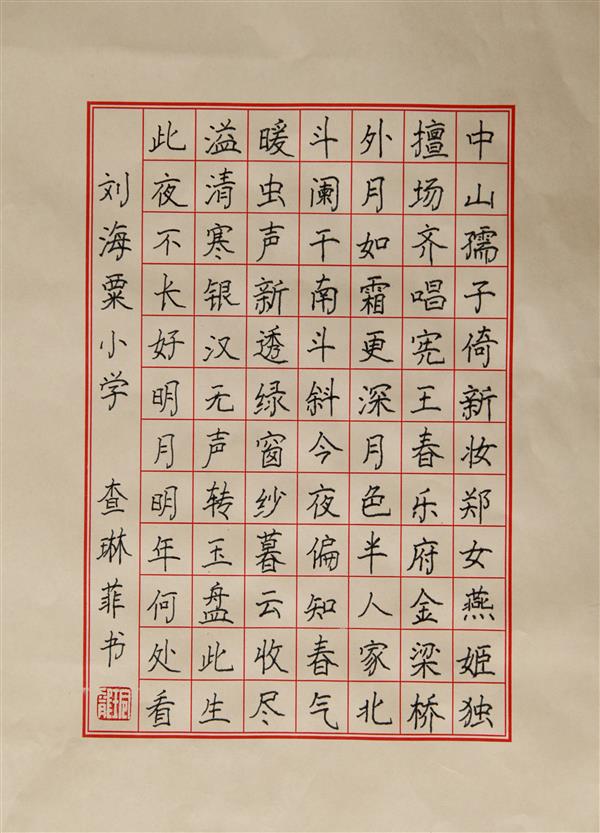 中山孺子倚新妆郑女燕姬独
擅场齐唱宪王春乐府金梁桥
外月如霜更深月色半人家北
斗阑干南斗斜今夜偏知春气
暖虫声新透绿窗纱暮云收尽
溢清寒银汉无声转玉盘此生
此夜不长好明月明年何处看
刘海粟小学 查琳菲书